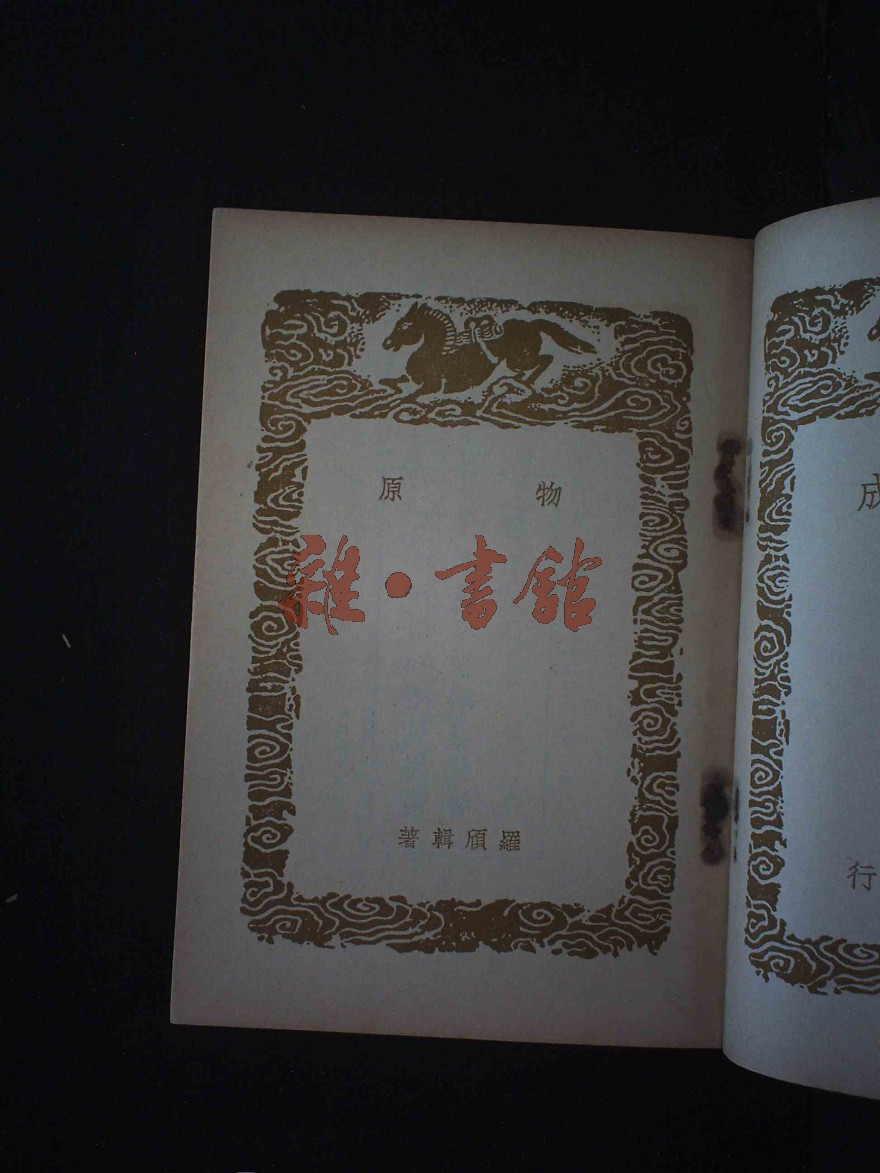 物原
雜·書館
羅頎輯著
成
行